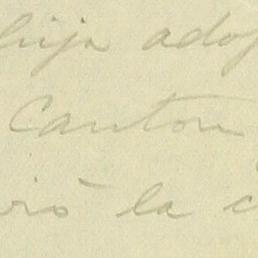 hija adop
Canton
iró la c